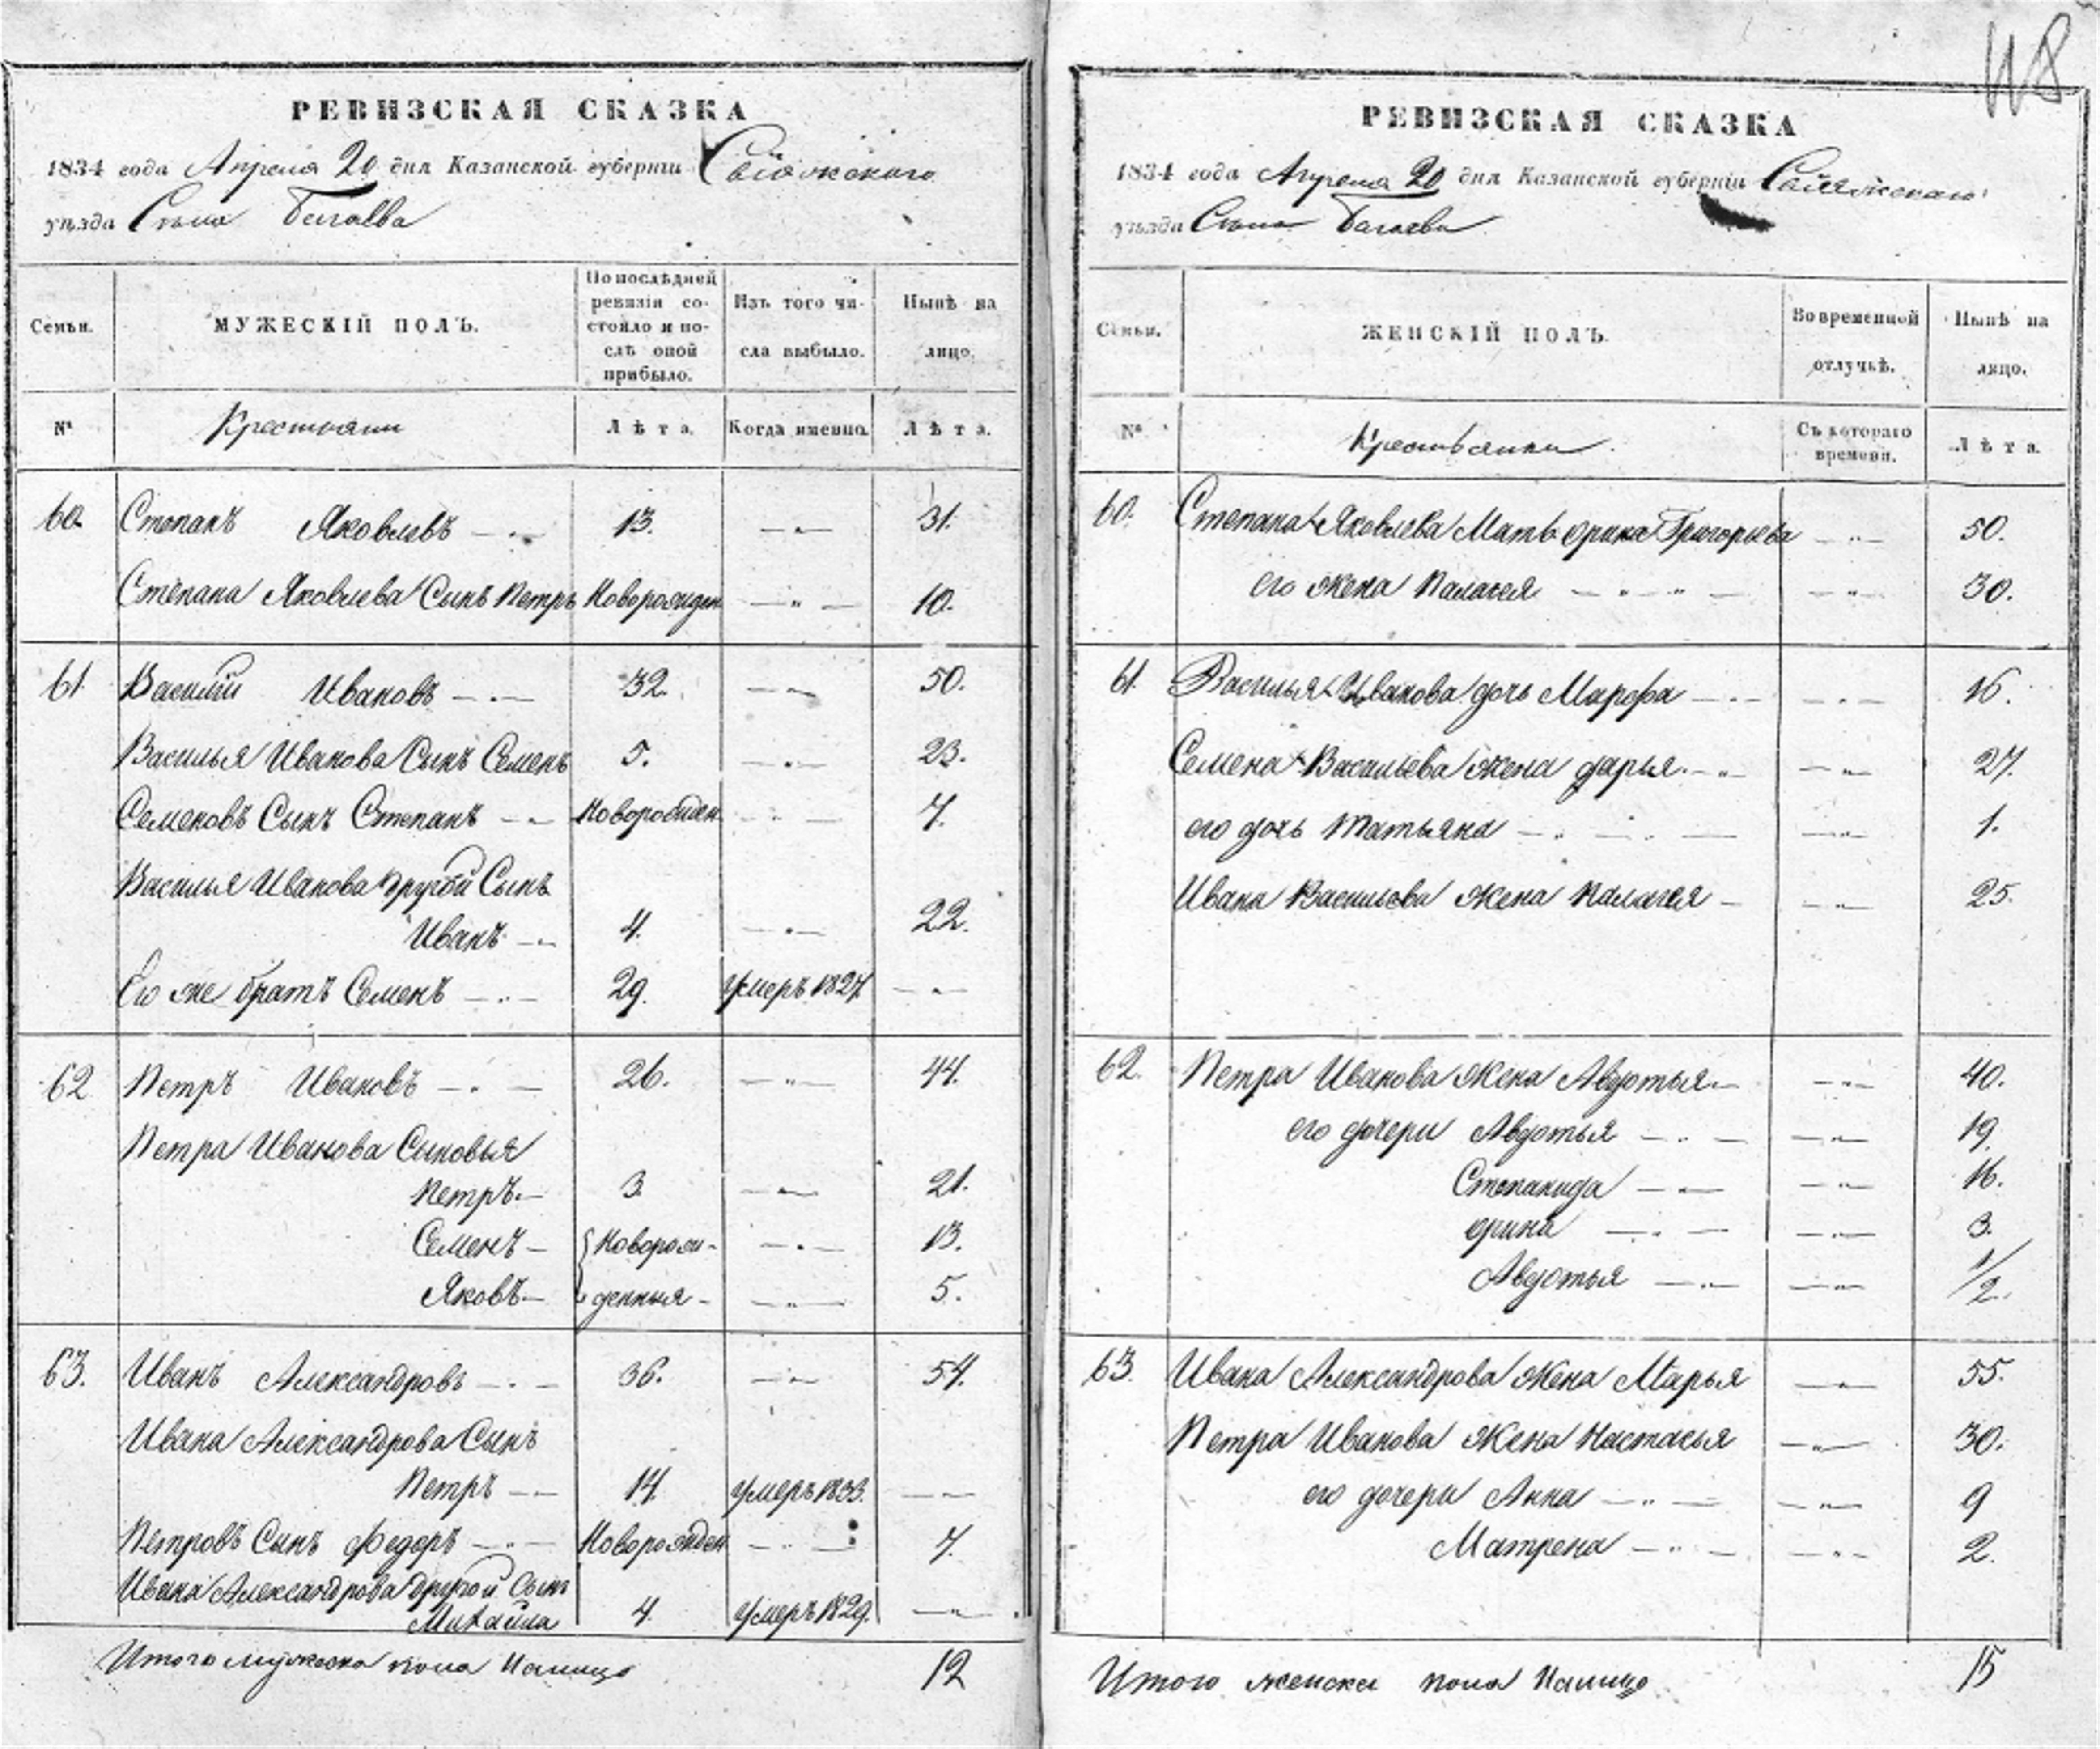 118
РЕВИЗСКАЯ СКАЗКА
1834 года Апреля 20 дня Казанской губерніи Свіяжскаго
уѣзда Села Багаева
Семьи.
МУЖЕСКІЙ ПОЛЪ.
По послѣдней ревизіи состояло и послѣ оной прибыло.
Изъ того числа выбыло.
Нынѣ на лицо.
№
Крестьяни
Лѣта.
Когда именно.
Лѣта.
60. Степанъ Яковлевъ 13. 31.
Степана Яковлева Сынъ Петръ Новорожден 10.
61. Василій Ивановъ 32. 50.
Василья Иванова Сынъ Семенъ 5. 23.
Семеновъ Сынъ Степанъ Новорожден 7.
Василья Иванова другой Сынъ
Иванъ 4. 22.
Его же братъ Семенъ 29. умеръ 1827.
62 Петръ Ивановъ 26. 44.
Петра Иванова Сыновья
Петръ 3. 21.
Семенъ Новорож- 13.
Яковъ денныя 5.
63. Иванъ Александровъ 36. 54.
Ивана Александрова Сынъ
Петръ 14. умеръ 1833.
Петровъ Сынъ Федоръ Новорожден 7.
Ивана Александрова другой Сынъ
Михайла 4. умеръ 1829.
Итого мужеска пола Налицо 12
РЕВИЗСКАЯ СКАЗКА
1834 года Апреля 20 дня Казанской губерніи Свіяжскаго
уѣзда Села Багаева
Семьи.
ЖЕНСКІЙ ПОЛЪ.
Во временной отлучкѣ.
Нынѣ на лицо.
№
Крестьянки
Съ котораго времени.
Лѣта.
60. Степана Яковлева Мать Орина Григорьева 50.
его жена Палагея 30.
61. Василья Иванова дочь Марфа 16.
Семена Васильева жена дарья 27.
его дочь Татьяна 1.
Ивана Васильева жена Палагея 25.
62. Петра Иванова жена Авдотья 40.
его дочери Авдотья 19.
Степанида 16.
орина 3.
Авдотья 1/2.
63. Ивана Александрова жена Марья 55.
Петра Иванова жена Настасья 30.
его дочери Анна 9
Матрена 2.
Итого женска пола Налицо 15